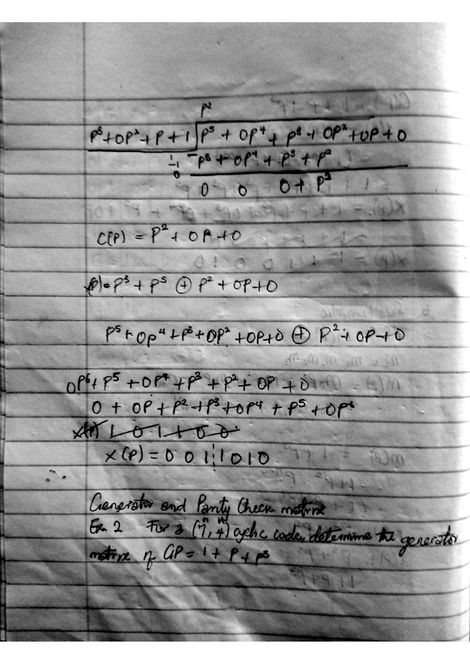 P²
P³+0P²+P+1 P⁵ + 0P⁴ + P³ + 0P² + 0P + 0
-P⁵ + 0P⁴ + P³ + P²
0 0 0 + P²
C(P) = P² + 0P + 0
(P) = P³ + P⁵ ⊕ P² + 0P + 0
P⁵ + 0P⁴ + P³ + 0P² + 0P + 0 ⊕ P² + 0P + 0
0P⁶ + P⁵ + 0P⁴ + P³ + P² + 0P + 0
0 + 0P + P² + P³ + 0P⁴ + P⁵ + 0P⁶
x(P) 1 0 1 1 0 0
x(P) = 0 0 1 1 0 1 0
Generator and Parity Check matrix
Ex 2 For a (7, 4) cyclic code, determine the generator
matrix if GP = 1 + P + P³